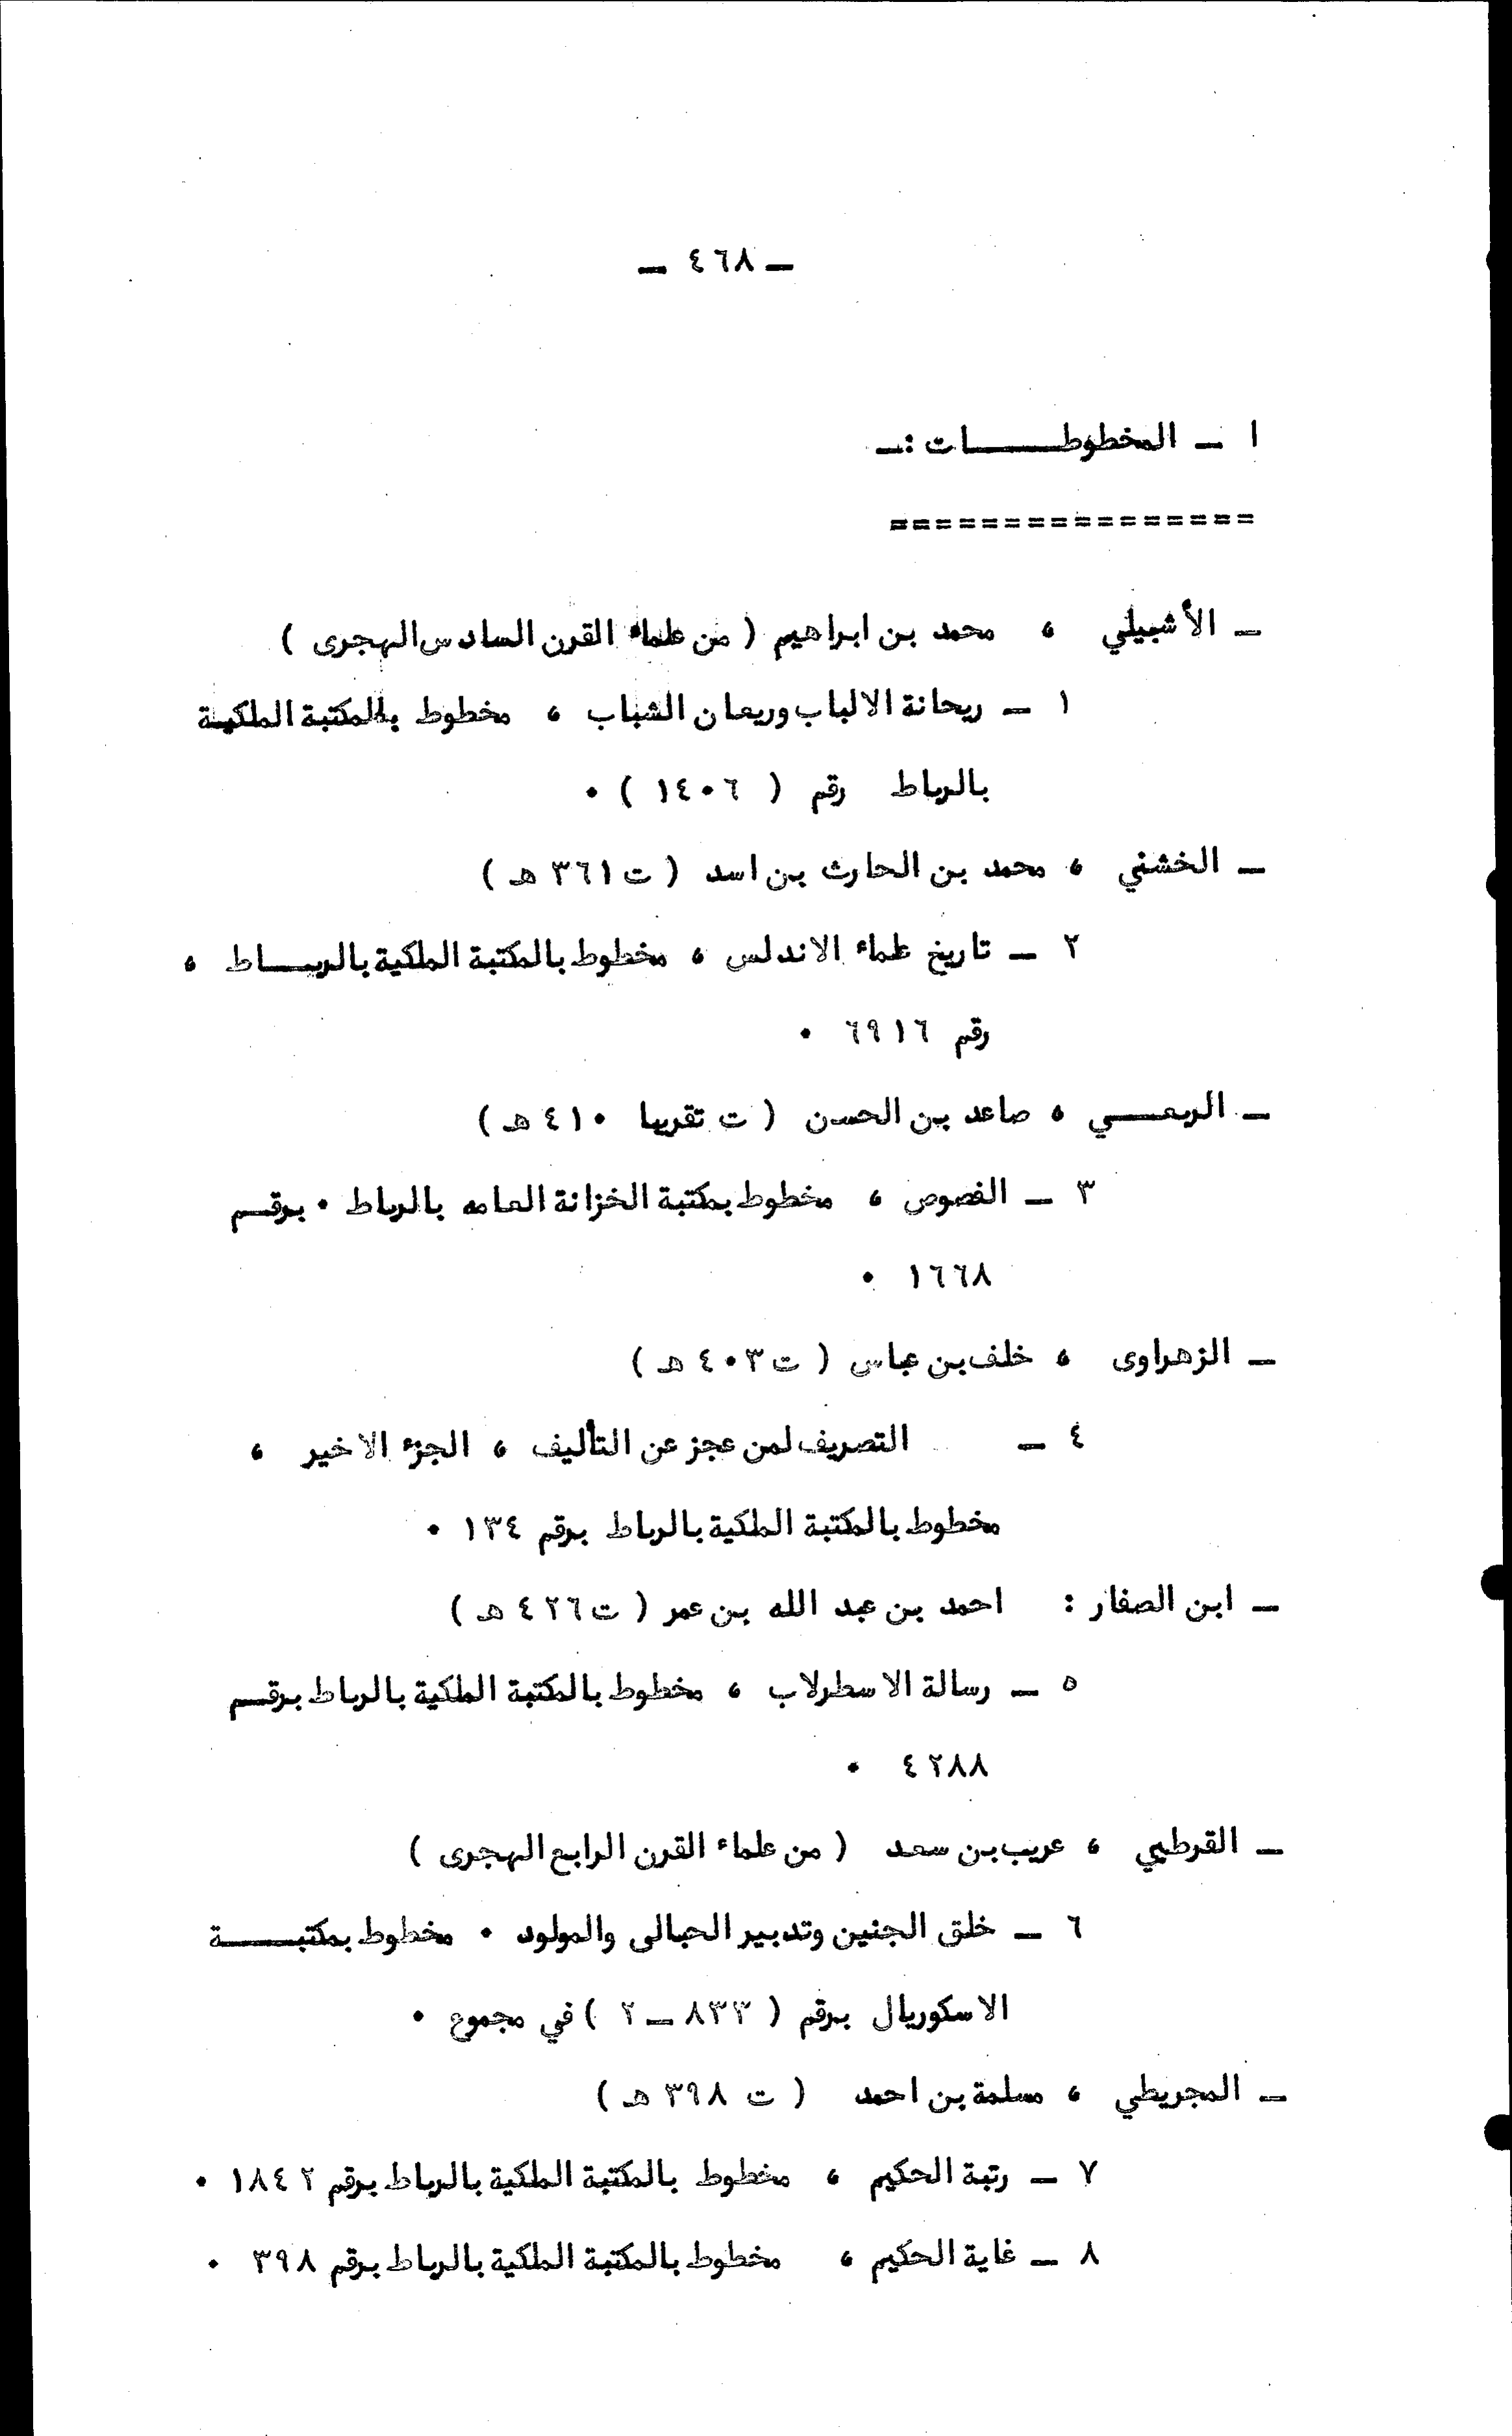 ـ ٤٦٨ ـ
ا ـ المخطوطـــــــات :ـ
================
ـ الأشبيلي ، محمد بن ابراهيم ( من علماء القرن السادس الهجرى )
١ ـ ريحانة الالباب وريعان الشباب ، مخطوط بالمكتبة الملكيـة
بالرباط رقم ( ١٤٠٦ ) ٠
ـ الخشني ، محمد بن الحارث بن اسد ( ت ٣٦١ هـ )
٢ ـ تاريخ علماء الاندلس ، مخطوط بالمكتبة الملكية بالربــاط ،
رقم ٦٩١٦ ٠
ـ الربعـــي ، صاعد بن الحسن ( ت تقريبا ٤١٠ هـ )
٣ ـ الفصوص ، مخطوط بمكتبة الخزانة العامه بالرباط ٠ برقـم
١٦٦٨ ٠
ـ الزهراوى ، خلف بن عباس ( ت ٤٠٣ هـ )
٤ ـ التصريف لمن عجز عن التأليف ، الجزء الاخير ،
مخطوط بالمكتبة الملكية بالرباط برقم ١٣٤ ٠
ـ ابن الصفار : احمد بن عبد الله بن عمر ( ت ٤٢٦ هـ )
٥ ـ رسالة الاسطرلاب ، مخطوط بالمكتبة الملكية بالرباط برقـم
٤٢٨٨ ٠
ـ القرطبي ، عريب بن سعد ( من علماء القرن الرابع الهجرى )
٦ ـ خلق الجنين وتدبير الحبالى والمولود ٠ مخطوط بمكتبــــة
الاسكوريال برقم ( ٨٣٣ ـ ٢ ) في مجموع ٠
ـ المجريطي ، مسلمة بن احمد ( ت ٣٩٨ هـ )
٧ ـ رتبة الحكيم ، مخطوط بالمكتبة الملكية بالرباط برقم ١٨٤٢ ٠
٨ ـ غاية الحكيم ، مخطوط بالمكتبة الملكية بالرباط برقم ٣٩٨ ٠